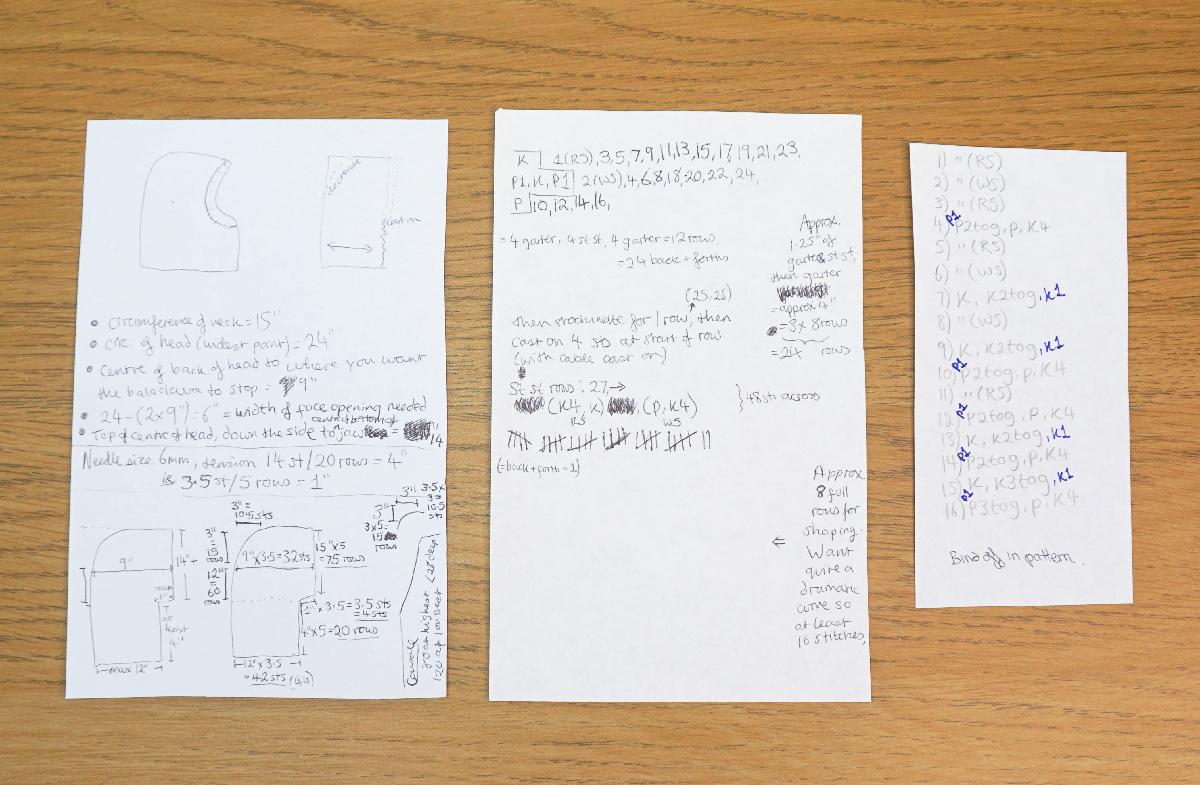 decrease
cast on
• Circumference of neck = 15"
• Circ. of head (widest point) = 24"
• Centre of back of head to where you want
the balaclava to stop = 9"
• 24 - (2x9") = 6" = width of face opening needed
• Top of centre of head, down the side to centre bottom of jaw = 14"
Needle size 6mm, tension 14 st/20 rows = 4"
is 3.5 st/5 rows = 1"
9"
14"
at least 4"
max 12"
3" = 15 rows
12" = 60 rows
3" = 10.5 sts
9" x 3.5 = 32 sts
15" x 5 = 75 rows
1" x 3.5 = 3.5 sts = 4 sts
4" x 5 = 20 rows
12" x 3.5
= 42 sts
3"
3.5 x 3 = 10.5 sts
3"
3x5 = 15 rows
K 1(RS), 3, 5, 7, 9, 11, 13, 15, 17, 19, 21, 23,
P1, K, P1 2(WS), 4, 6, 8, 18, 20, 22, 24,
P 10, 12, 14, 16,
= 4 garter, 4 st st, 4 garter = 12 rows,
= 24 back + forths
Approx.
1.25" of
garter & st st,
then garter
= approx 4"
= 3x 8 rows
= 24 rows
(25, 26)
then stockinette for 1 row, then
cast on 4 sts at start of row
(with cable cast on)
St st rows: 27, →
(K4, K) (P, K4)
RS WS
} 48 sts across
(= back + forth = 1)
Approx
8 full
rows for
shaping.
⇐ Want
quite a
dramatic
curve so
at least
16 stitches,
1) " (RS)
2) " (WS)
3) " (RS)
4) P1 P2tog, P, K4
5) " (RS)
6) " (WS)
7) K, K2tog, K1
8) " (WS)
9) K, K2tog, K1
10) P1 P2tog, P, K4
11) " (RS)
12) P1 P2tog, P, K4
13) K, K2tog, K1
14) P1 P2tog, P, K4
15) K, K3tog, K1
16) P1 P3tog, P, K4
Bind off in pattern.